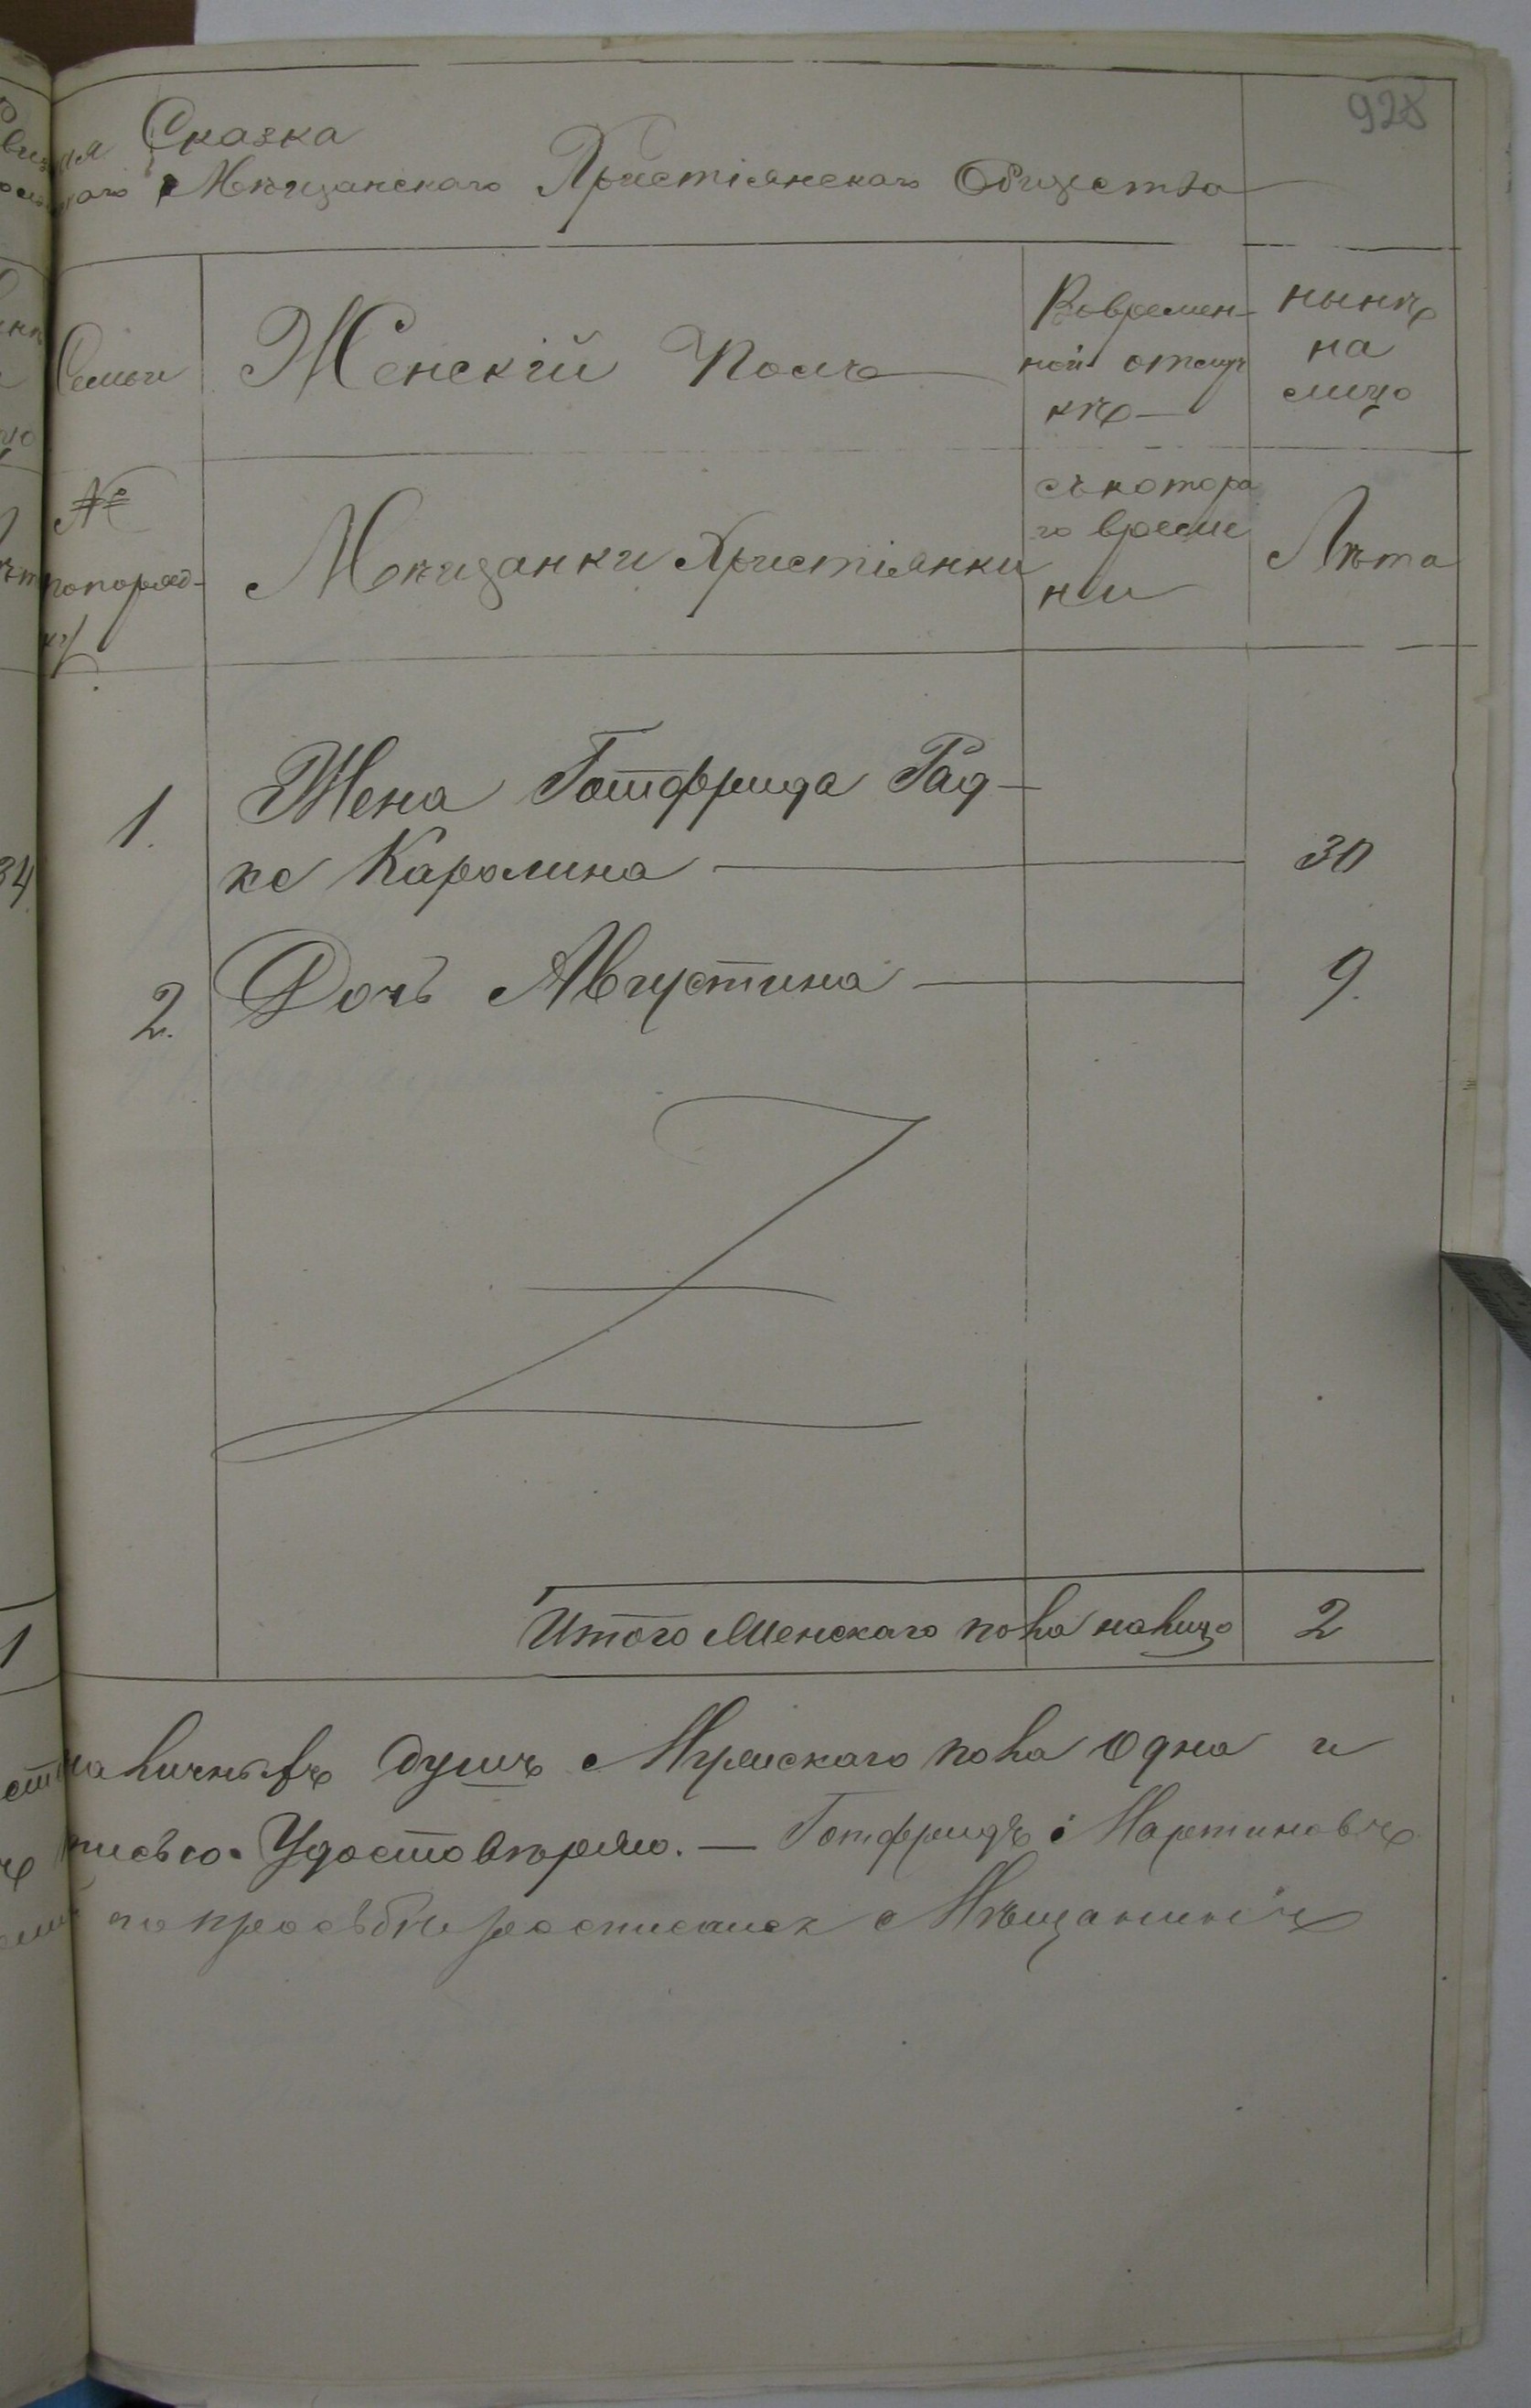 928
Сказка
Мѣщанскаго Христіянскаго Общества
Семьи
Женскій Полъ
Вовремен-
ной отлуч
кѣ
нынѣ
на
лицо
№
попоряд-
ку
Мѣщанки Христіянки
съ котора
го време
ни
Лѣта
1.
Жена Готфрида Рад-
ке Каролина
30
2.
Дочь Августина
9.
Итого Женскаго пола налицо
2
наличныхъ душъ Мужескаго пола Одна и
Удостовѣряю. — Готфридъ Мартиновъ
по просьбѣ росписался Мѣщанинъ
34
1